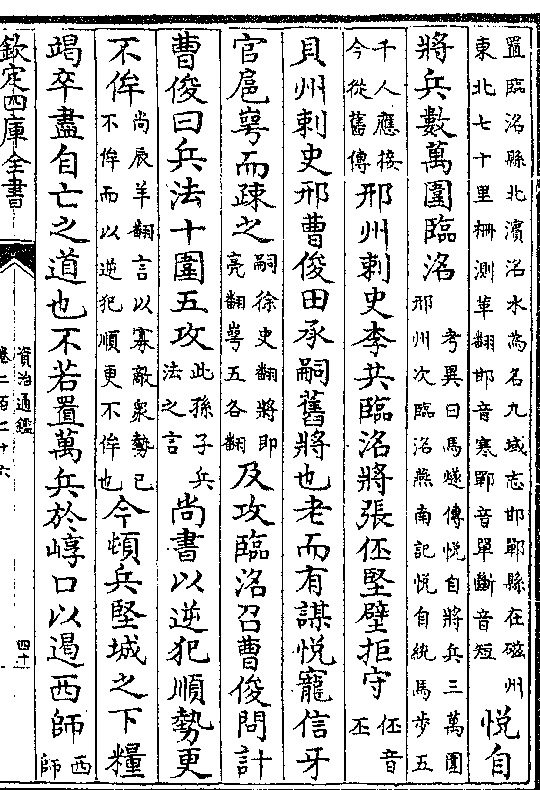 置臨洺縣北濱洺水為名九域志邯鄲縣在磁州東北七十里柵測革翻邯音寒鄲音單斷音短悅自
將兵數萬圍臨洺考異曰馬燧傳悅自將兵三萬圍邢州次臨洺燕南記悅自統馬步五
千人應接今從舊傳邢州刺史李共臨洺將張伾堅壁拒守伾音丕
貝州刺史邢曹俊田承嗣舊將也老而有謀悅寵信牙
官扈崿而疎之嗣徐史翻將即亮翻崿五各翻及攻臨洺召曹俊問計
曹俊曰兵法十圍五攻此孫子兵法之言尚書以逆犯順勢更
不侔尚辰羊翻言以寡敵衆勢已不侔而以逆犯順更不侔也今頓兵堅城之下糧
竭卒盡自亡之道也不若置萬兵於崞口以遏西師西師
欽定四庫全書
資治通鑑
卷二百二十六
四十